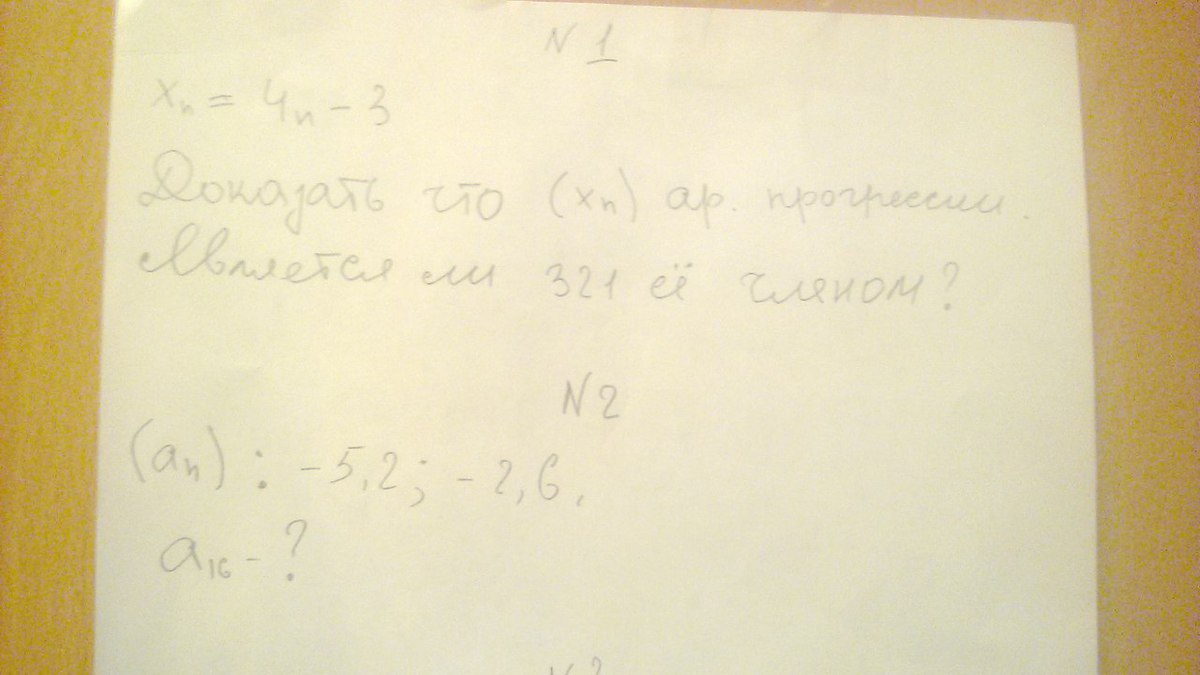 N 1
xₙ = 4ₙ - 3
Доказать что (xₙ) ар. прогрессии.
Является ли 321 её членом?
N 2
(aₙ) : -5,2; -2,6,
a₁₆ - ?